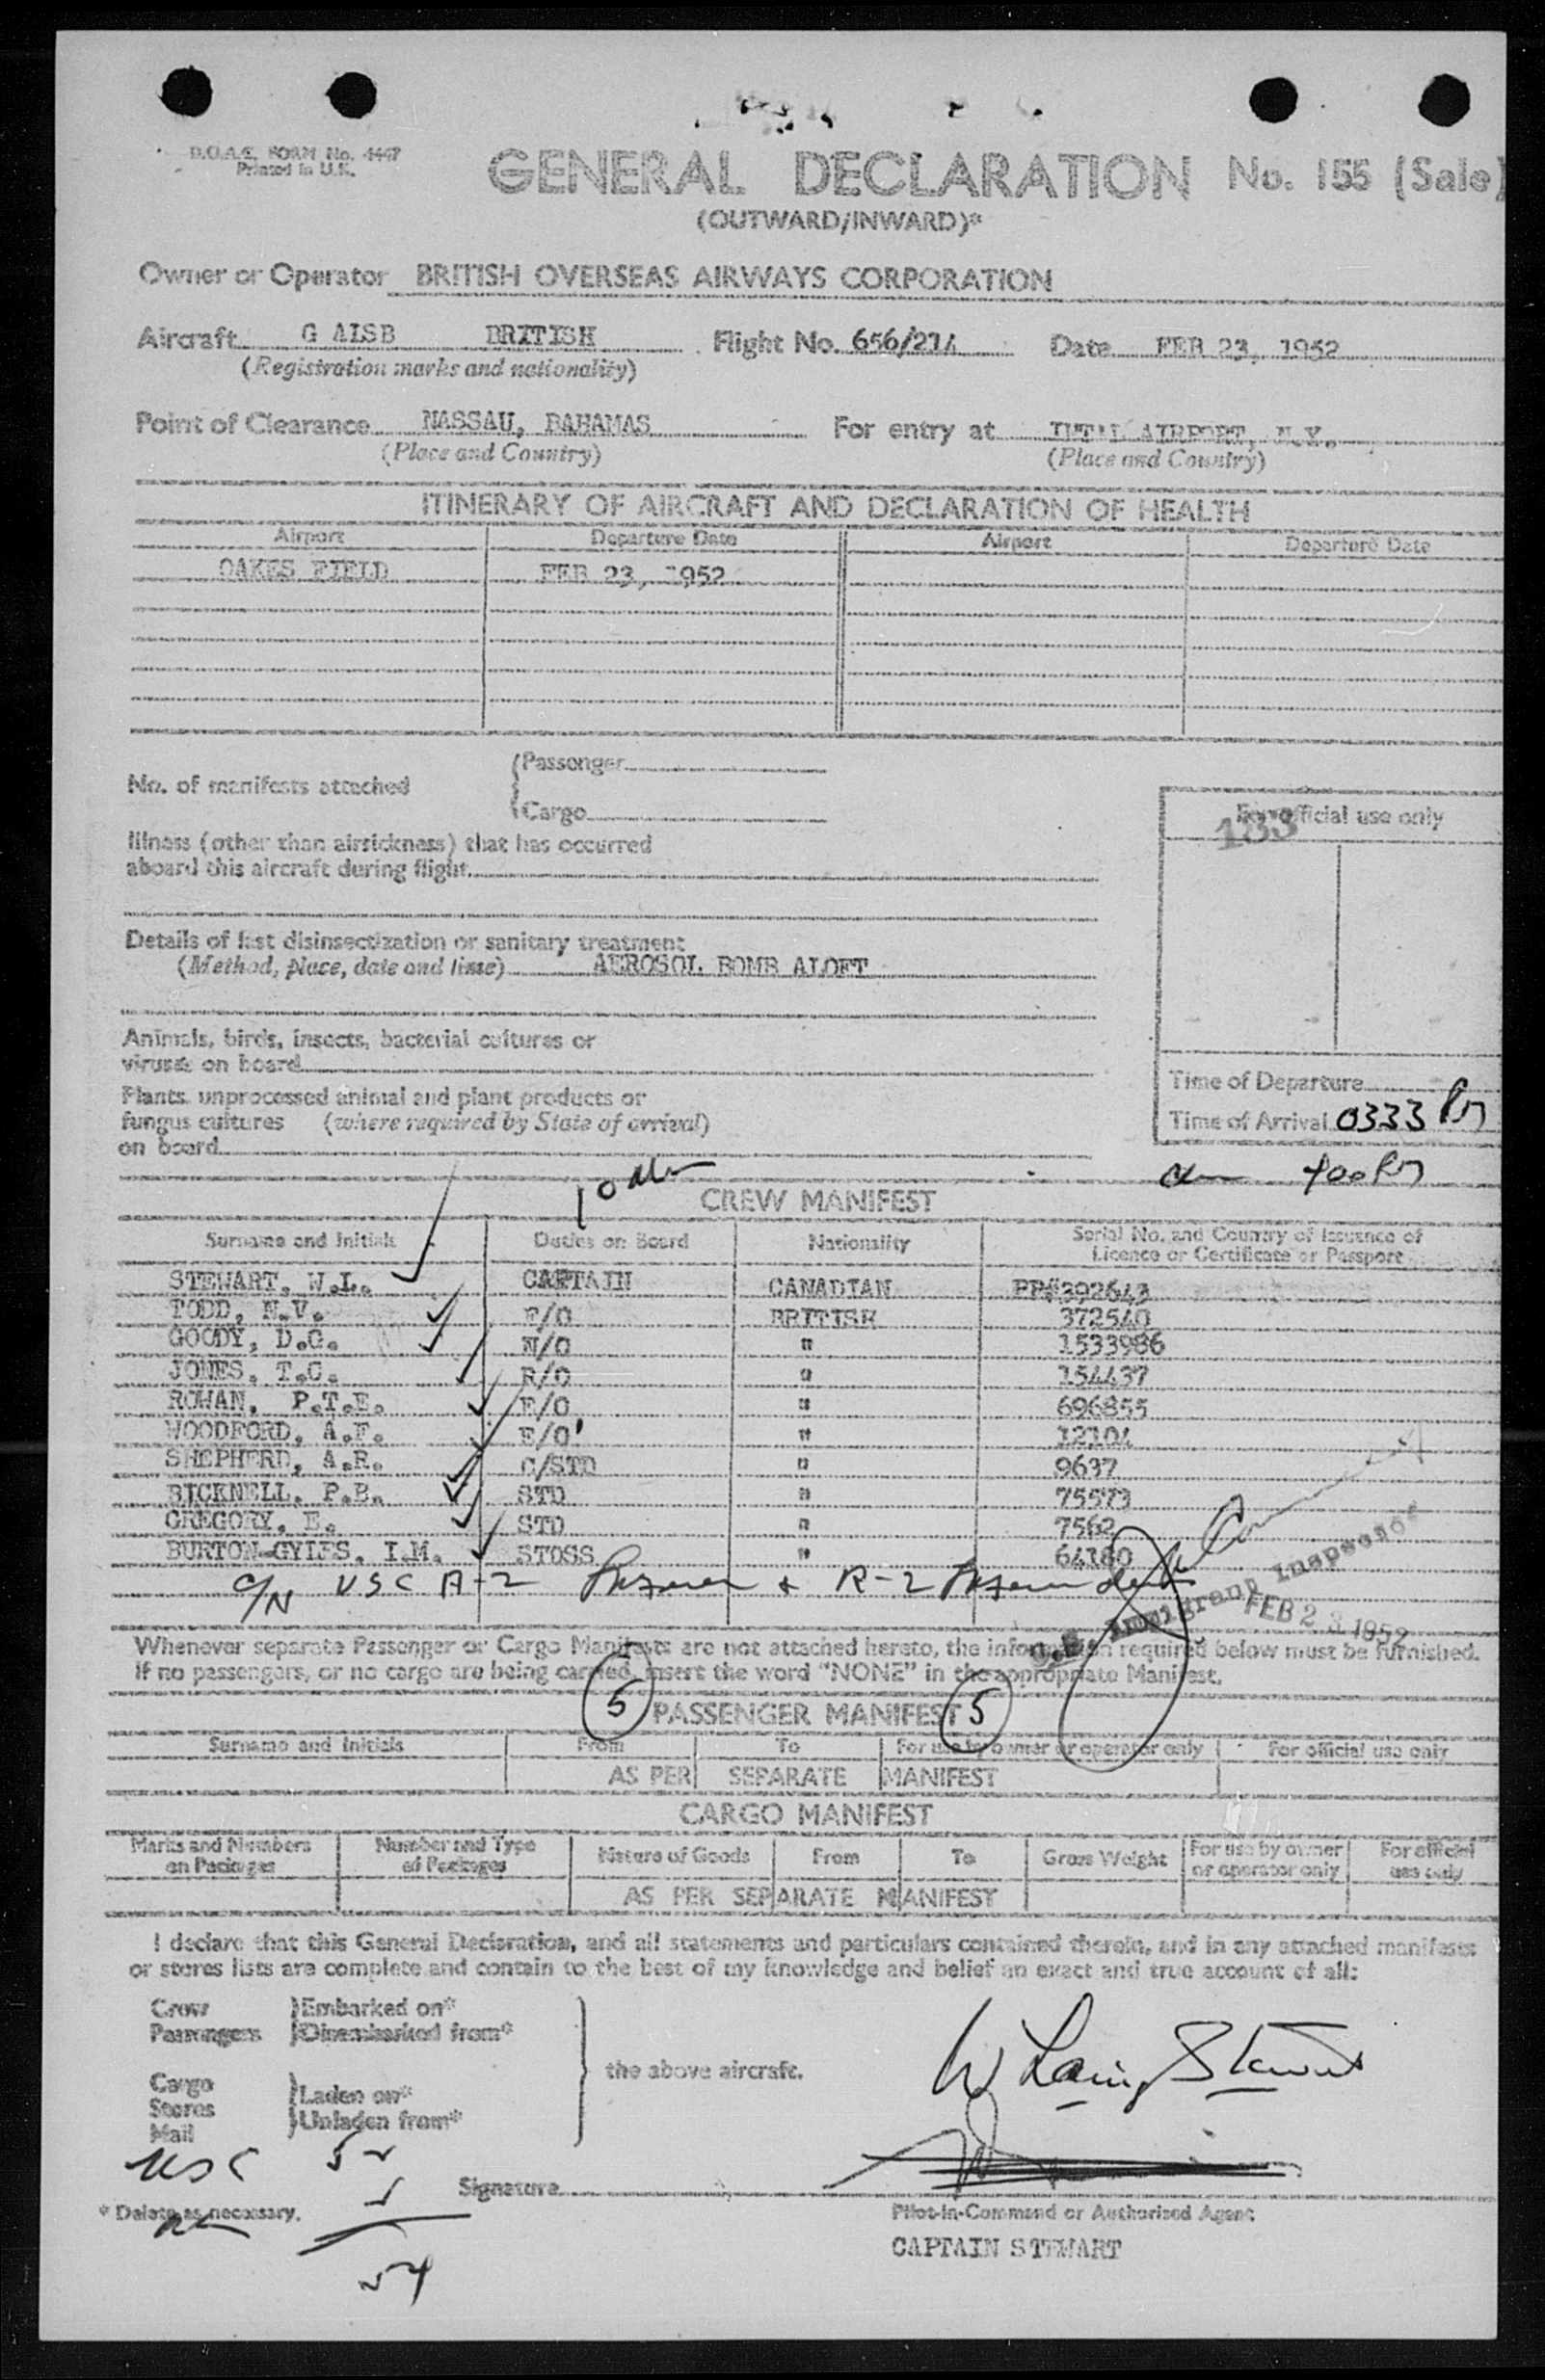 B.O.A.C. FORM No. 4447
Printed in U.K.
GENERAL DECLARATION No. 155 (Sale)
(OUTWARD/INWARD)*
Owner or Operator BRITISH OVERSEAS AIRWAYS CORPORATION
Aircraft G ALSB BRITISH Flight No. 656/214 Date FEB 23, 1952
(Registration marks and nationality)
Point of Clearance NASSAU, BAHAMAS For entry at INT'L AIRPORT, N.Y.
(Place and Country) (Place and Country)
ITINERARY OF AIRCRAFT AND DECLARATION OF HEALTH
Airport Departure Date Airport Departure Date
OAKES FIELD FEB 23, 1952
No. of manifests attached
Passenger
Cargo
For official use only
183
Illness (other than airsickness) that has occurred
aboard this aircraft during flight
Details of last disinsectization or sanitary treatment
(Method, place, date and time) AEROSOL BOMB ALOFT
Animals, birds, insects, bacterial cultures or
viruses on board
Plants unprocessed animal and plant products or
fungus cultures (where required by State of arrival)
on board
Time of Departure
Time of Arrival 0333 PM
400 PM
10
CREW MANIFEST
Surname and Initials Duties on Board Nationality Serial No. and Country of Issuance of
Licence or Certificate or Passport
STEWART, W.L. CAPTAIN CANADIAN PP#392643
TODD, N.V. F/O BRITISH 372540
GOODY, D.C. N/O " 1533986
JONES, T.G. R/O " 154437
ROWAN, P.T.E. E/O " 696855
WOODFORD, A.F. E/O' " 12104
SHEPHERD, A.R. C/STD " 9637
BICKNELL, P.B. STD " 75573
GREGORY, E. STD " 7562
BURTON-GYLES, I.M. STDSS " 64180
C/N USC A-2 + R-2
U.S. Immigrant Inspector
FEB 23 1952
Whenever separate Passenger or Cargo Manifests are not attached hereto, the information required below must be furnished.
If no passengers, or no cargo are being carried, insert the word "NONE" in the appropriate Manifest.
5 PASSENGER MANIFEST 5
Surname and Initials From To For use by owner or operator only For official use only
AS PER SEPARATE MANIFEST
CARGO MANIFEST
Marks and Numbers on Packages Number and Type of Packages Nature of Goods From To Gross Weight For use by owner or operator only For official use only
AS PER SEPARATE MANIFEST
I declare that this General Declaration, and all statements and particulars contained therein, and in any attached manifests
or stores lists are complete and contain to the best of my knowledge and belief an exact and true account of all:
Crew Embarked on*
Passengers Disembarked from*
the above aircraft.
Cargo
Stores Laden on*
Mail Unladen from*
W Laing Stewart
USC 52
Signature
* Delete as necessary.
Pilot-in-Command or Authorised Agent
CAPTAIN STEWART
54